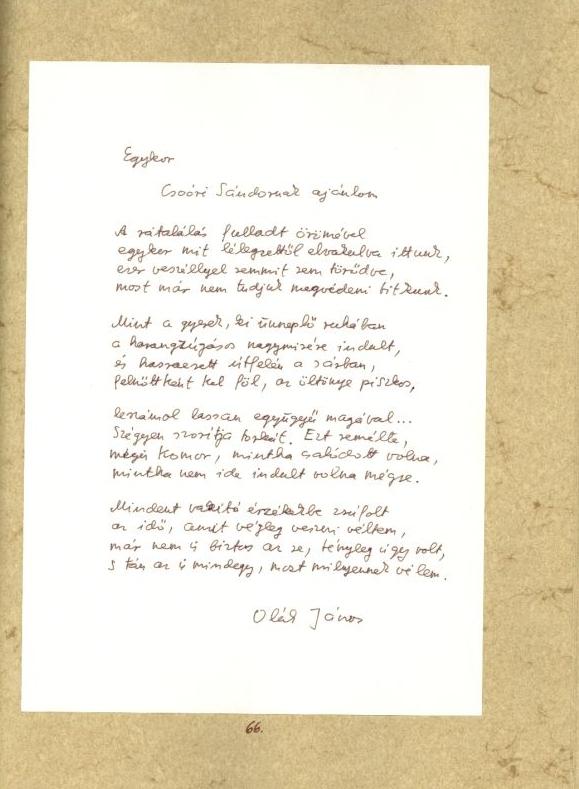 Egykor
Csoóri Sándornak ajánlom
A rátalálás fulladt örömével
egykor mit lélegzettől elvakulva ittunk,
ezer veszéllyel semmit sem törődve,
most már nem tudjuk megvédeni titkunk.
Mint a gyerek, ki ünneplő ruhában
a harangzúgásos nagymisére indult,
és hasraesett útfelén a sárban,
felnőttként kel föl, az öltönye piszkos,
leszámol lassan együgyű magával...
Szégyen szorítja torkát. Ezt remélte,
mégis komor, mintha csalódott volna,
mintha nem ide indult volna mégse.
Mindent vakító érzékekbe zsúfolt
az idő, amit végleg veszni véltem,
már nem is biztos az se, tényleg úgy volt,
s tán az is mindegy, most milyennek vélem.
Oláh János
66.